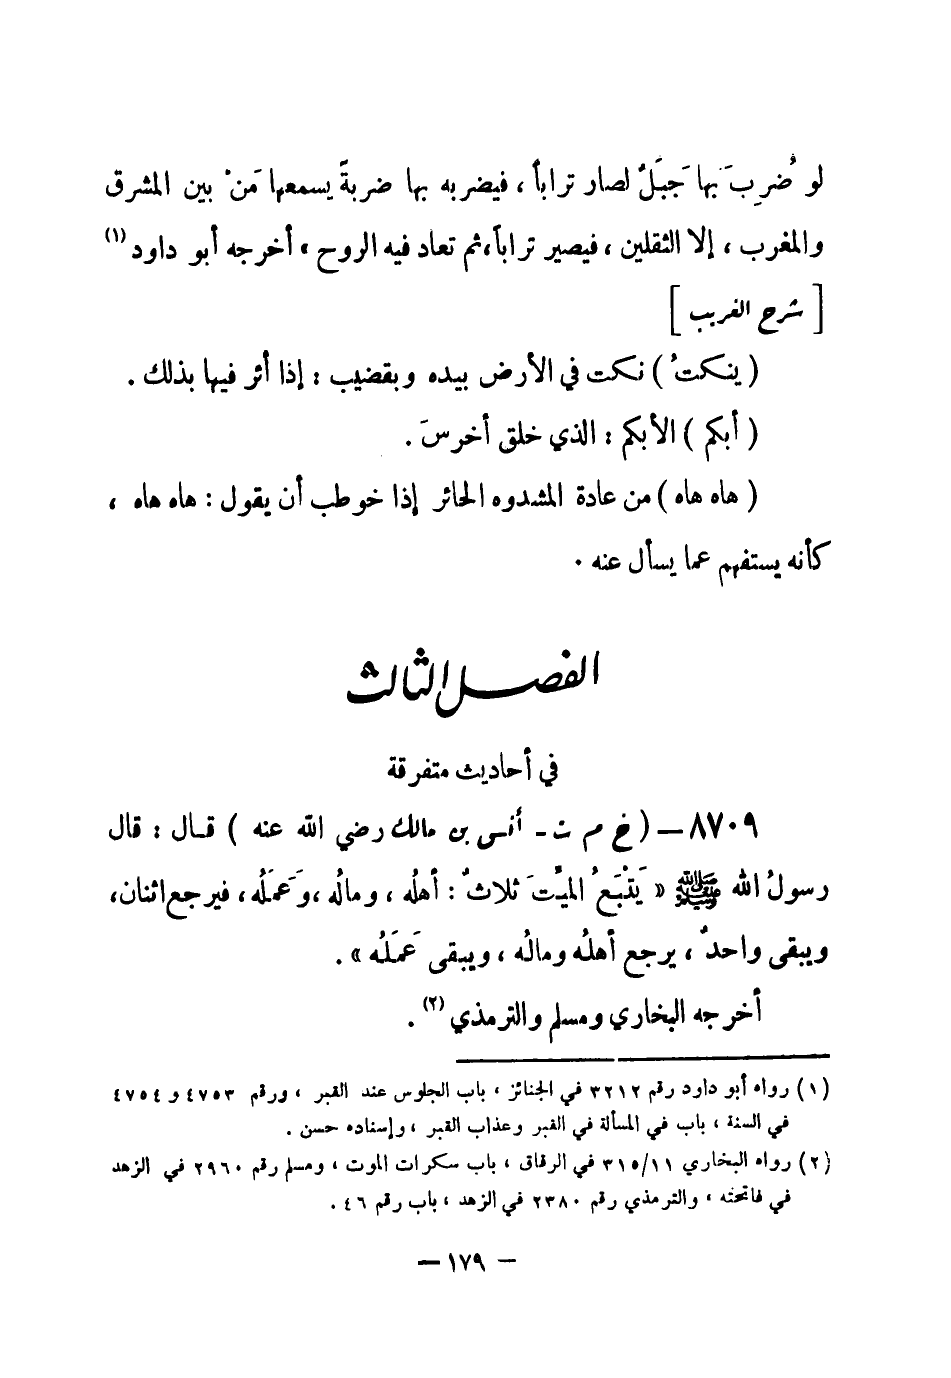 لو ضُرِبَ بها جَبَلٌ لصار تراباً ، فيضربه بها ضربةً يسمعها مَنْ بين المشرق
والمغرب ، إلا الثقلين ، فيصير تراباً،ثم تعاد فيه الروح » أخرجه أبو داود (١)
[ شرح الغريب ]
( ينكتُ ) نكت في الأرض بيده وبقضيب : إذا أثر فيها بذلك .
( أبكم ) الأبكم : الذي خلق أخرسَ .
( هاه هاه ) من عادة المشدوه الحائر إذا خوطب أن يقول : هاه هاه ،
كأنه يستفهم عما يسأل عنه .
الفصل الثالث
في أحاديث متفرقة
٨٧٠٩ – ( خ م ت - أنس بن مالك رضي الله عنه ) قال : قال
رسولُ الله ﷺ « يَتْبَعُ الميِّتَ ثلاثٌ : أهلُه ، ومالُه ،وَعَمَلُه ، فيرجع اثنان،
ويبقى واحدٌ ، يرجع أهلُه ومالُه ، ويبقى عَمَلُه » .
أخرجه البخاري ومسلم والترمذي (٢) .
(١) رواه أبو داود رقم ٣٢١٢ في الجنائز ، باب الجلوس عند القبر ، ورقم ٤٧٥٣ و ٤٧٥٤
في السنة ، باب في المسألة في القبر وعذاب القبر ، وإسناده حسن .
(٢) رواه البخاري ٣١٥/١١ في الرقاق ، باب سكرات الموت ، ومسلم رقم ٢٩٦٠ في الزهد
في فاتحته ، والترمذي رقم ٢٣٨٠ في الزهد ، باب رقم ٤٦ .
– ١٧٩ –